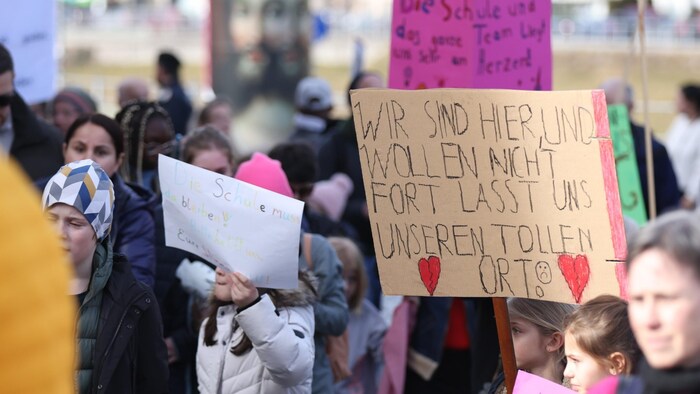 Die Schule und
das ganze Team liegt
uns sehr am
Herzen!
WIR SIND HIER, UND
WOLLEN NICHT
FORT LASST UNS
UNSEREN TOLLEN
ORT!
Die Schule muss
bleiben!